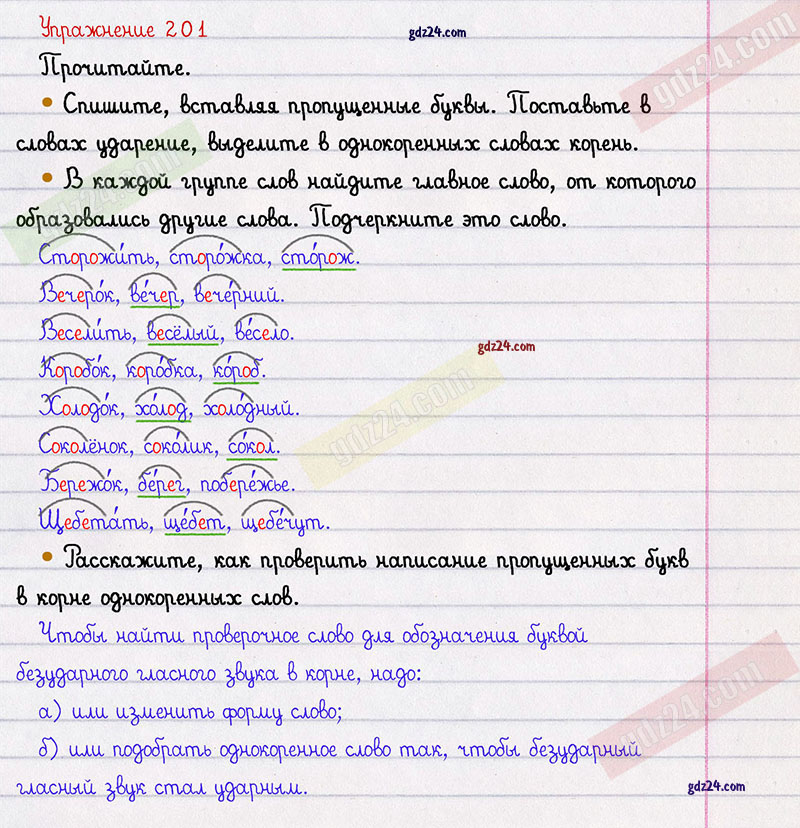 Упражнение 201
gdz24.com
Прочитайте.
• Спишите, вставляя пропущенные буквы. Поставьте в
словах ударение, выделите в однокоренных словах корень.
• В каждой группе слов найдите главное слово, от которого
образовались другие слова. Подчеркните это слово.
Сторожи́ть, сторо́жка, сто́рож.
Вечеро́к, ве́чер, вече́рний.
Весели́ть, весёлый, ве́село.
gdz24.com
Коробо́к, коро́бка, ко́роб.
Холодо́к, хо́лод, холо́дный.
Соколёнок, соко́лик, со́кол.
Бережо́к, бе́рег, побере́жье.
Щебета́ть, ще́бет, щебе́чут.
• Расскажите, как проверить написание пропущенных букв
в корне однокоренных слов.
Чтобы найти проверочное слово для обозначения буквой
безударного гласного звука в корне, надо:
а) или изменить форму слово;
б) или подобрать однокоренное слово так, чтобы безударный
гласный звук стал ударным.
gdz24.com
gdz24.com
gdz24.com
gdz24.com
gdz24.com